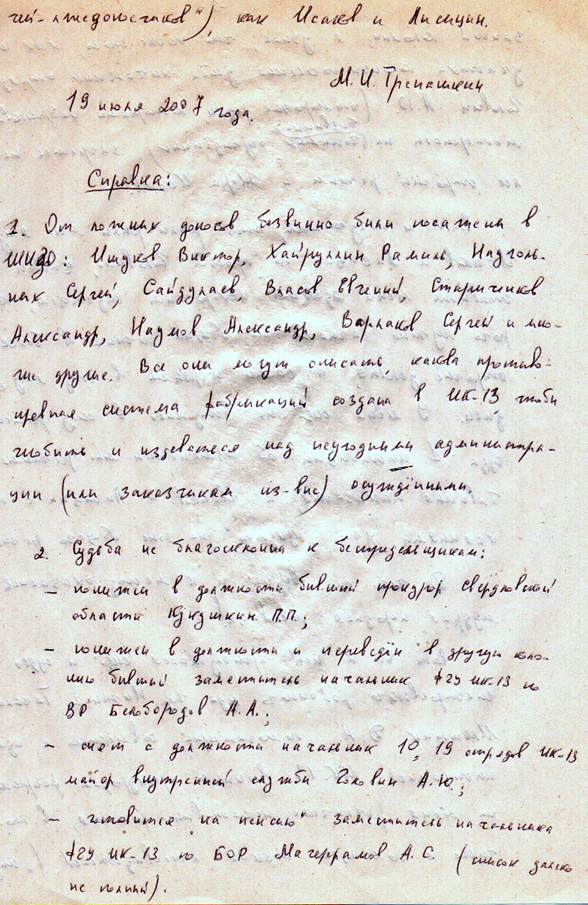 тей-лжедоносчиков"), как Исаков и Лисицин.
М.И. Трепашкин
19 июля 2007 года.
Справка:
1. От ложных доносов безвинно были посажены в
ШИЗО: Ишуков Виктор, Хайруллин Рамиль, Надголь-
ных Сергей, Сайдулаев, Власов Евгений, Стариченков
Александр, Наумов Александр, Варлаков Сергей и мно-
гие другие. Все они могут описать, какова противо-
правная система фабрикаций создана в ИК-13, чтобы
гнобить и издеваться над неугодными администра-
ции (или заказчикам из-вне) осуждёнными.
2. Судьба не благосклонна к беспредельщикам:
– понижен в должности бывший прокурор Свердловской
области Кукушкин П.П.;
– понижен в должности и переведён в другую коло-
нию бывший заместитель начальник ФГУ ИК-13 по
ВР Белобородов А.А.;
– снят с должности начальник 10, 19 отрядов ИК-13
майор внутренней службы Головин А.Ю.;
– "готовится на пенсию" заместитель начальника
ФГУ ИК-13 по БОР Магеррамов А.С. (список далеко
не полный).